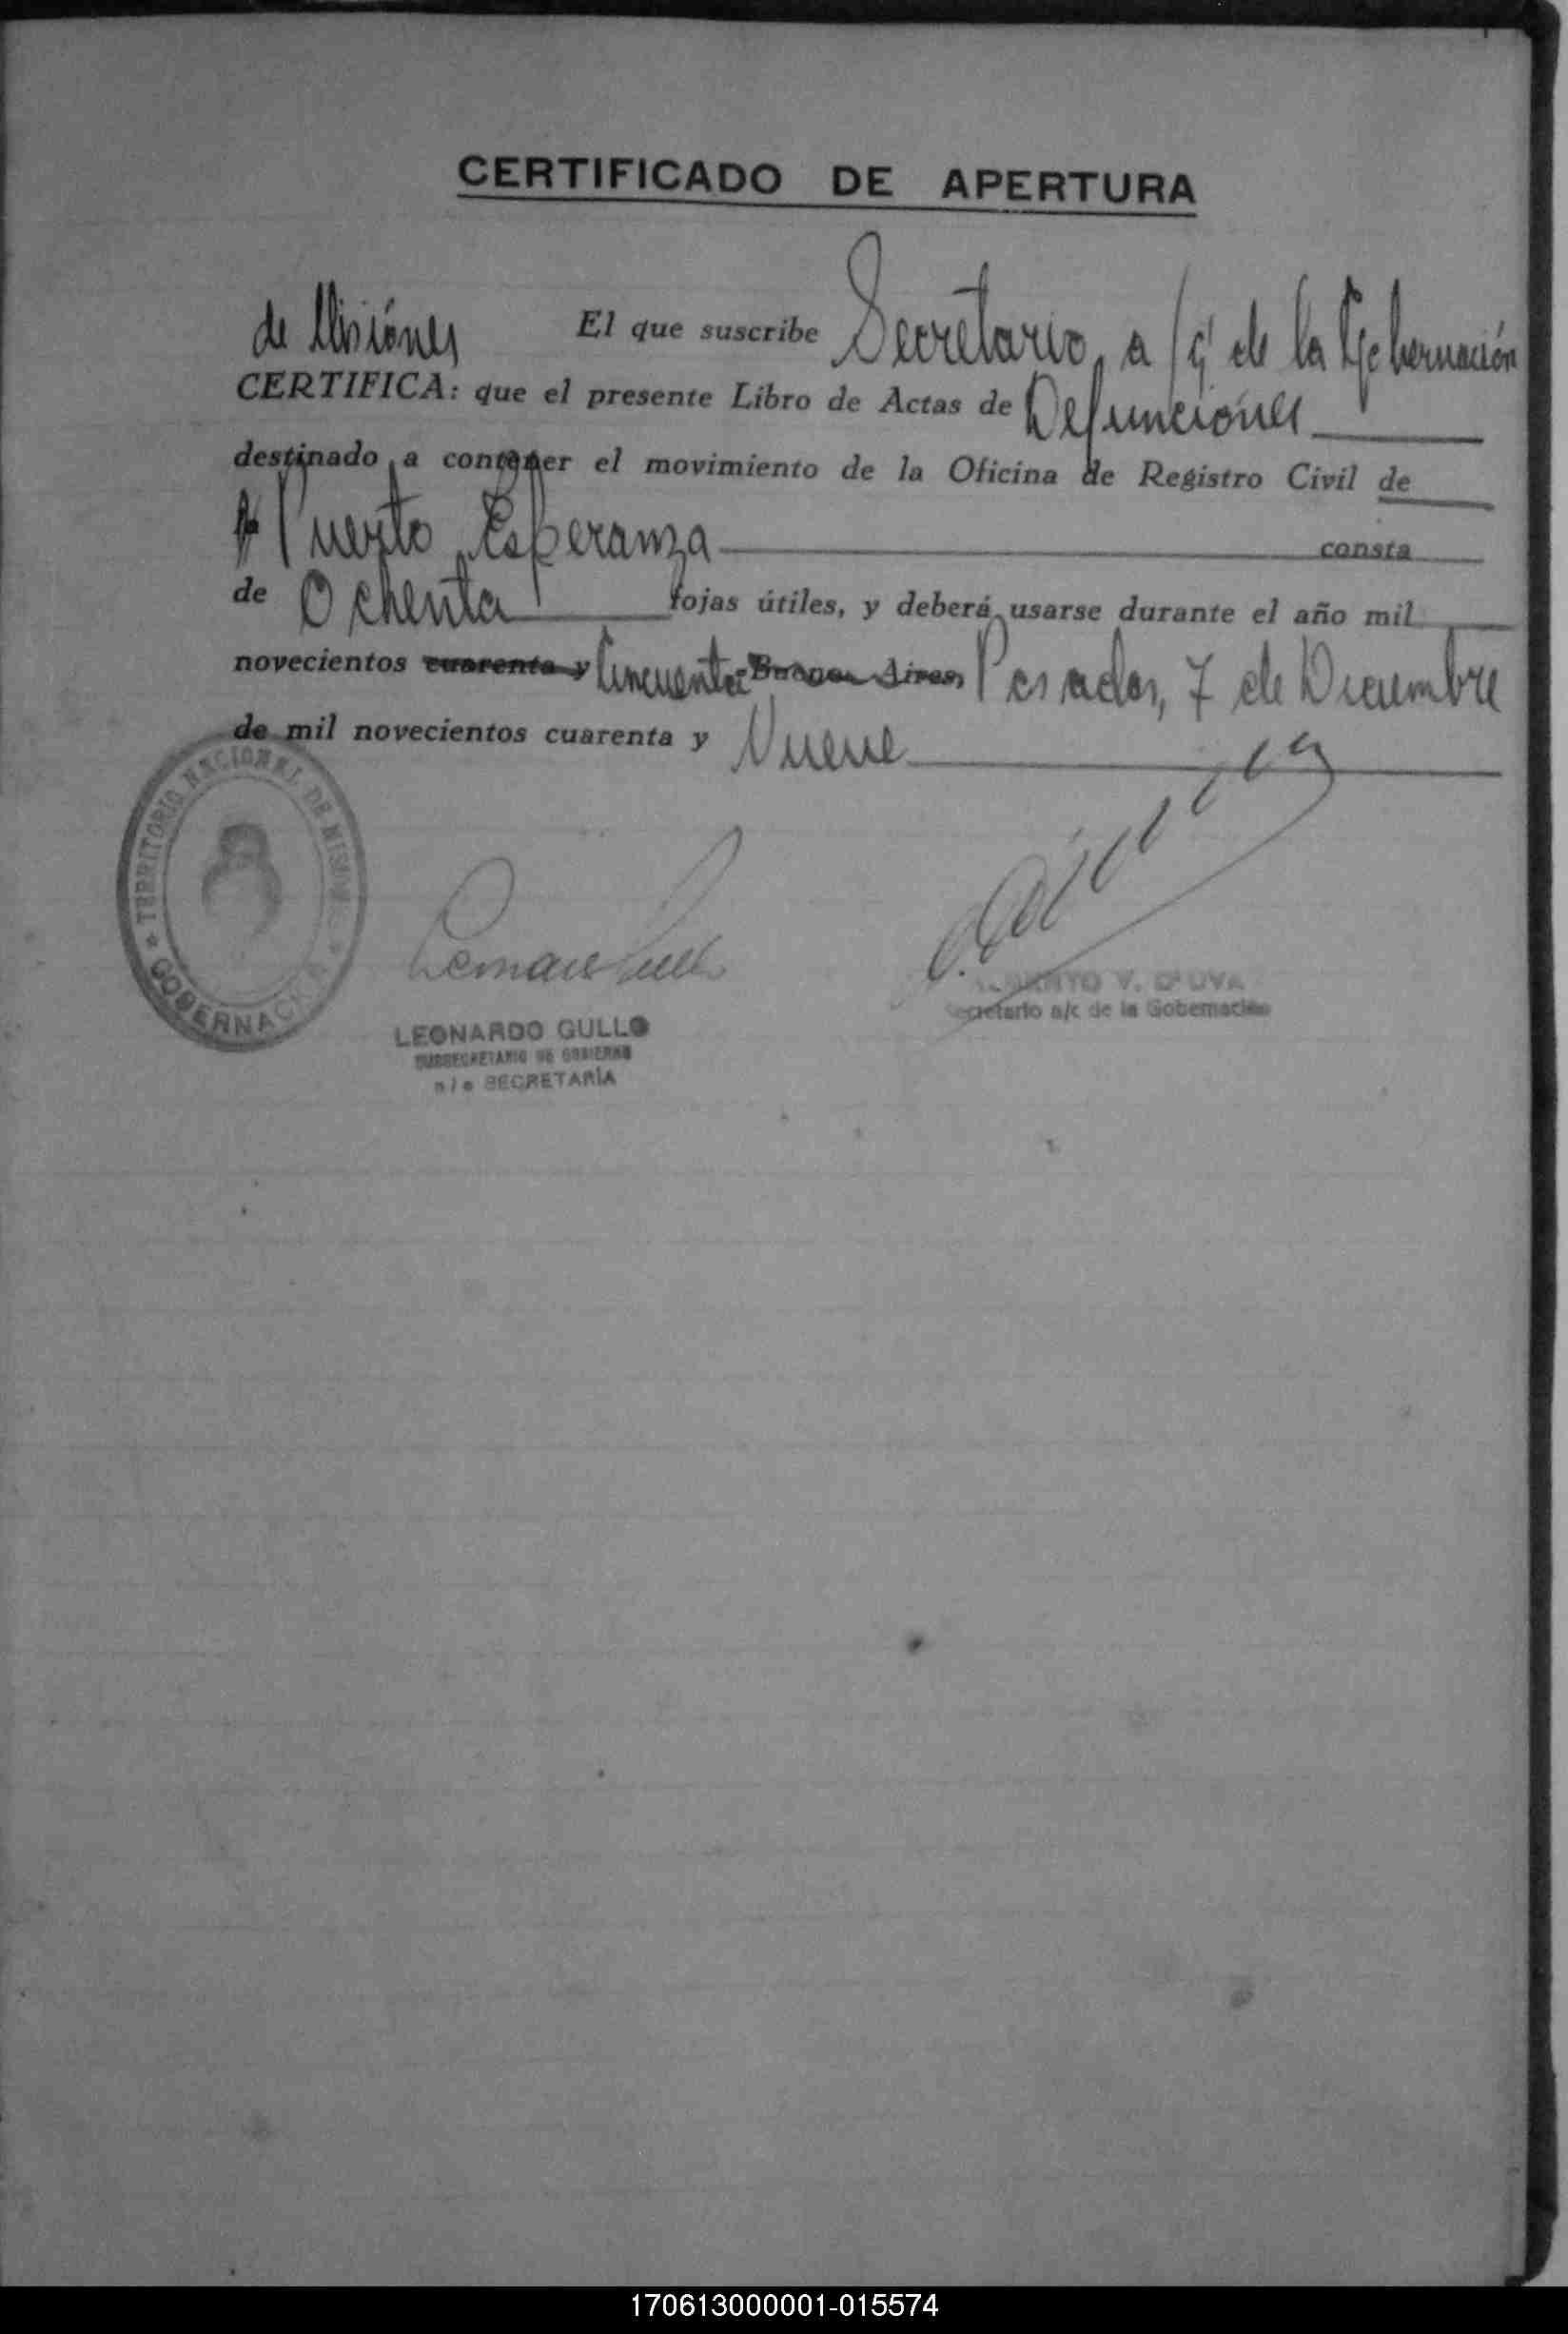 CERTIFICADO DE APERTURA
El que suscribe Secretario, a/c de la Gobernación
de Misiones
CERTIFICA: que el presente Libro de Actas de Defunciones
destinado a contener el movimiento de la Oficina de Registro Civil de
Puerto Esperanza consta
de Ochenta fojas útiles, y deberá usarse durante el año mil
novecientos cuarenta y Cincuenta Buenos Aires, Posadas, 7 de Diciembre
de mil novecientos cuarenta y Nueve
TERRITORIO NACIONAL DE MISIONES
GOBERNACION
LEONARDO GULLO
SUBSECRETARIO DE GOBIERNO
a/c SECRETARÍA
V. D'UVA
Secretario a/c de la Gobernación
170613000001-015574